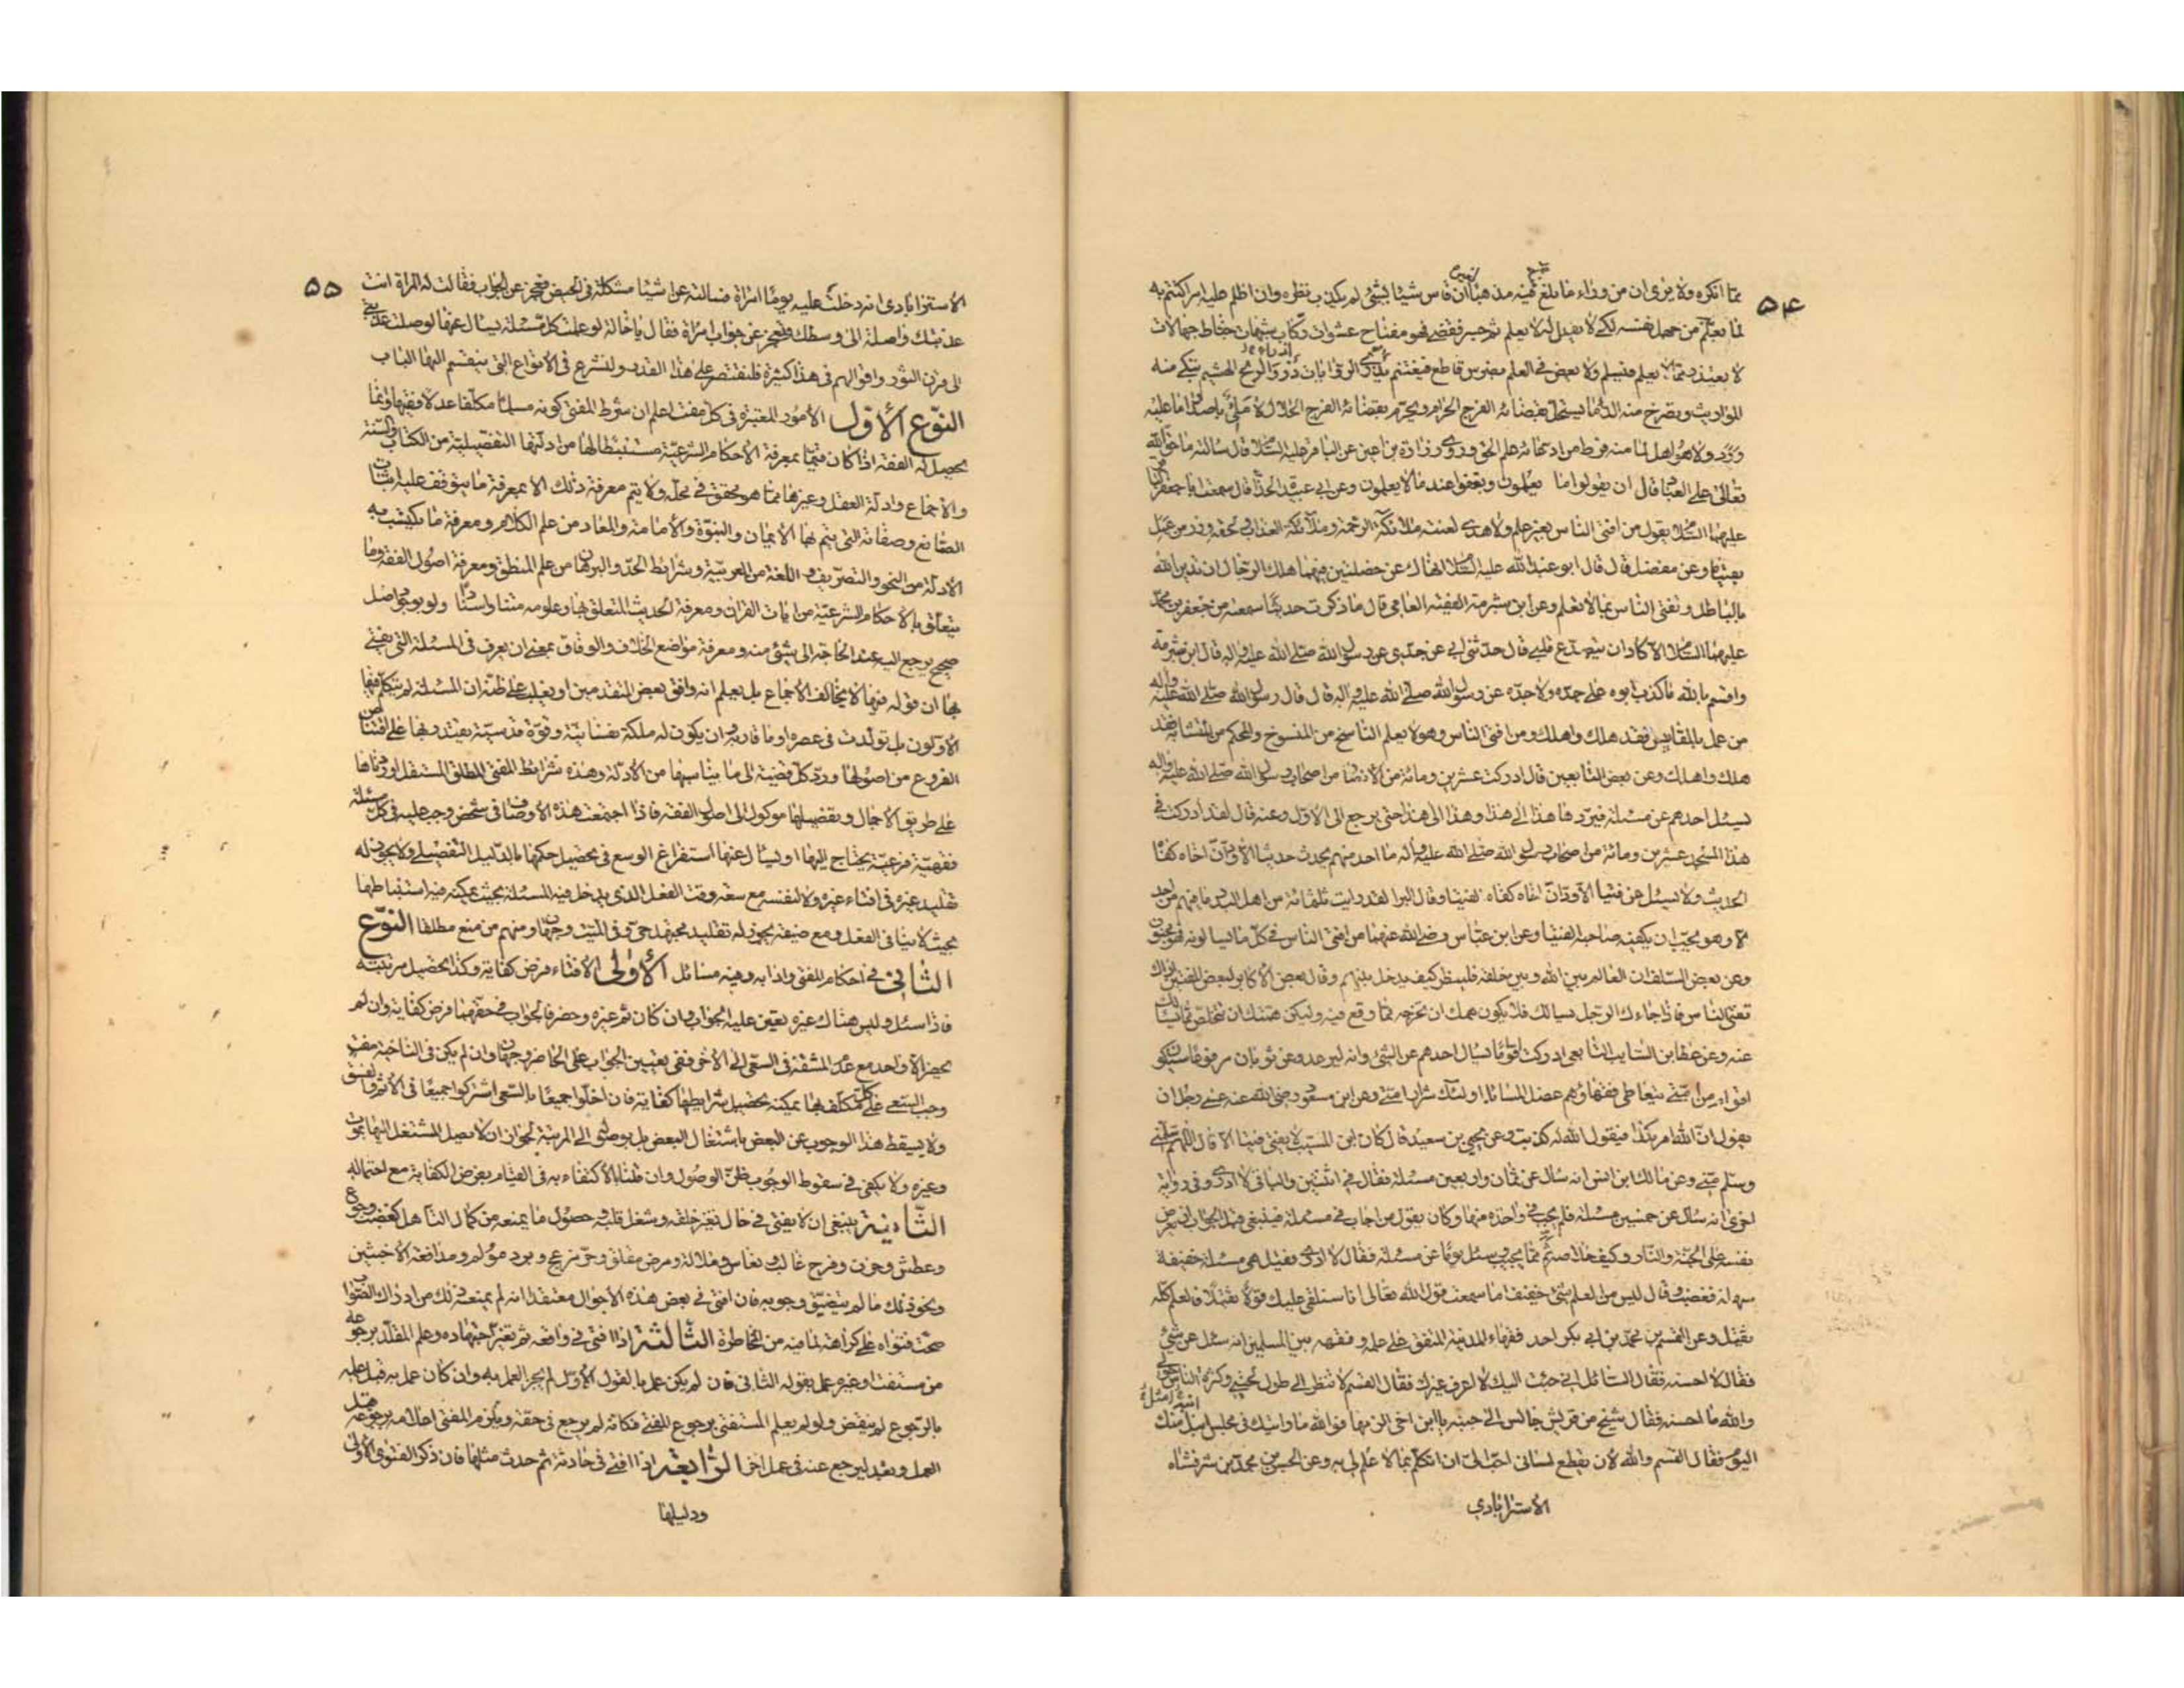 ۵۴
مما انكره ولا يرى ان من وراء ما بلغ فيه مذهبا ان قاس شيئا بشئ لم يكذب نظره وان اظلم عليه امر اكتتم به
لما يعلم من جهل نفسه لكيلا يقال له لا يعلم ثم جسر فقضى فهو مفتاح عشوات ركاب شبهات خباط جهالات
لا يعتذر مما لا يعلم فيسلم ولا يعض في العلم بضرس قاطع فيغتنم يذرى الروايات ذرو الريح الهشيم تبكى منه
المواريث وتصرخ منه الدماء يستحل بقضائه الفرج الحرام ويحرم بقضائه الفرج الحلال لا ملئ باصدار ما عليه
ورد ولا هو اهل لما منه فرط من ادعائه علم الحق وروى زرارة بن اعين عن الباقر عليه السلام قال سالته ما حق الله
تعالى على العباد قال ان يقولوا ما يعلمون ويقفوا عند ما لا يعلمون وعن ابى عبيدة الحذاء قال سمعت ابا جعفر
عليهما السلام يقول من افتى الناس بغير علم ولا هدى لعنته ملائكة الرحمة وملائكة العذاب ولحقه وزر من عمل
بفتياه وعن مفضل قال قال ابو عبد الله عليه السلام انهاك عن خصلتين فيهما هلك الرجال ان تدين الله
بالباطل وتفتى الناس بما لا تعلم وعن ابن شبرمة الفقيه العامى قال ما ذكرت حديثا سمعته من جعفر بن محمد
عليهما السلام الا كاد ان يتصدع قلبى قال حدثنى ابى عن جدى عن رسول الله صلى الله عليه واله قال ابن شبرمة
واقسم بالله ما كذب ابوه على جده ولا جده عن رسول الله صلى الله عليه واله قال قال رسول الله صلى الله عليه واله
من عمل بالمقاييس فقد هلك واهلك ومن افتى الناس وهو لا يعلم الناسخ من المنسوخ والمحكم من المتشابه فقد
هلك واهلك وعن بعض التابعين قال ادركت عشرين ومائة من الانصار من اصحاب رسول الله صلى الله عليه واله
يسئل احدهم عن مسئلة فيردها هذا الى هذا وهذا الى هذا حتى يرجع الى الاول وعنه قال لقد ادركت في
هذا المسجد عشرين ومائة من اصحاب رسول الله صلى الله عليه واله ما احد منهم يحدث حديثا الا ود ان اخاه كفاه
الحديث ولا يسئل عن فتيا الا ود ان اخاه كفاه الفتيا وقال البرا لقد رايت ثلثمائة من اهل البدر ما فيهم من احد
الا وهو يحب ان يكفيه صاحبه الفتيا وعن ابن عباس رضى الله عنهما من افتى الناس في كل ما يسالونه فهو مجنون
وعن بعض السلف ان العالم بين الله وبين خلقه فلينظر كيف يدخل بينهم وقال بعض الاكابر لبعض المفتين اراك
تفتى الناس فاذا جاءك الرجل يسالك فلا يكون همك ان تخرجه مما وقع فيه وليكن همتك ان تتخلص مما يسالك
عنه وعن عطا بن السايب التابعى ادركت اقواما يسال احدهم عن الشئ وانه ليرعد وعن ثوبان مرفوعا سيكون
اقوام من امتى يتعاطى فقهاؤهم عضل المسائل اولئك شرار امتى وعن ابن مسعود رضى الله عنه عسى رجل ان
يقول ان الله امر بكذا فيقول الله له كذبت وعن يحيى بن سعيد قال كان ابن المسيب لا يفتى فتيا الا قال اللهم سلمنى
وسلم منى وعن مالك ابن انس انه سال عن ثمان واربعين مسئلة فقال في اثنتين والباقى لا ادرى وفى رواية
اخرى انه سال عن خمسين مسئلة فلم يجب في واحدة منها وكان يقول من اجاب في مسئلة فينبغى قبل الجواب ان يعرض
نفسه على الجنة والنار وكيف خلاصه ثم يجيب وسئل يوما عن مسئلة فقال لا ادرى فقيل هى مسئلة خفيفة
سهلة فغضب وقال ليس من العلم شئ خفيف اما سمعت قول الله تعالى انا سنلقى عليك قولا ثقيلا فالعلم كله
ثقيل وعن القسم بن محمد بن ابى بكر احد فقهاء المدينة المتفق على علمه وفقهه بين المسلمين انه سئل عن شئ
فقال لا احسنه فقال السائل انى جئت اليك لا اعرف غيرك فقال القسم لا تنظر الى طول لحيتى وكثرة الناس حولى
والله ما احسنه فقال شيخ من قريش جالس الى جنبه يا ابن اخى الزمها فوالله ما رايتك في مجلس انبل منك
اليوم فقال القسم والله لان يقطع لسانى احب الى ان اتكلم بما لا علم لى به وعن الحسن بن محمد بن شرفشاه
الاسترابادي
۵۵
الاسترابادى انه دخلت عليه يوما امراة فسالته عن اشياء مشكلة في الحيض فعجز عن الجواب فقالت له المراة انت
عذبتك واصلة الى وسطك وتعجز عن جواب امراة فقال يا خالة لو علمت كل مسئلة يسال عنها لوصلت عذبتى
الى قرن الثور واقوالهم في هذا كثيرة فلنقتصر على هذا القدر ولنشرع في الانواع التى ينقسم اليها الباب
النوع الاول الامور المعتبرة في كل مفت اعلم ان شرط المفتى كونه مسلما مكلفا عدلا فقيها وانما
يحصل له الفقه اذا كان قيما بمعرفة الاحكام الشرعية مستنبطا لها من ادلتها التفصيلية من الكتاب والسنة
والاجماع وادلة العقل وغيرها مما هو محقق في محله ولا يتم معرفة ذلك الا بمعرفة ما يتوقف عليه اثبات
الصانع وصفاته التى يتم بها الايمان والنبوة والامامة والمعاد من علم الكلام ومعرفة ما يكتسب به
الادلة من النحو والتصريف واللغة من العربية وشرائط الحد والبرهان من علم المنطق ومعرفة اصول الفقه وما
يتعلق بالاحكام الشرعية من ايات القران ومعرفة الحديث المتعلق بها وعلومه متنا واسنادا ولو بوجود اصل
صحيح يرجع اليه عند الحاجة الى شئ منه ومعرفة مواضع الخلاف والوفاق بمعنى ان يعرف في المسئلة التى يفتى
بها ان قوله فيها لا يخالف الاجماع بل يعلم انه وافق بعض المتقدمين او يغلب على ظنه ان المسئلة لم يتكلم فيها
الاولون بل تولدت في عصره او ما قاربه وان يكون له ملكة نفسانية وقوة قدسية يقتدر بها على اقتناص
الفروع من اصولها ورد كل قضية الى ما يناسبها من الادلة وهذه شرائط المفتى المطلق المستقل اوردناها
على طريق الاجمال وتفصيلها موكول الى اصول الفقه فاذا اجتمعت هذه الاوصاف في شخص وجب عليه في كل مسئلة
فقهية فرعية يحتاج اليها او يسال عنها استفراغ الوسع في تحصيل حكمها بالدليل التفصيلى ولا يجوز له
تقليد غيره في افتاء غيره ولا لنفسه مع سعة وقت الفعل الذى يدخل فيه المسئلة بحيث يمكنه فيه استنباطها
بحيث لا ينافى الفعل ومع ضيقه يجوز له تقليد مجتهد حى وفى الميت وجهان ومنهم من منع مطلقا النوع
الثانى في احكام المفتى وادابه وفيه مسائل الاولى الافتاء فرض كفاية وكذا تحصيل مرتبته
فاذا سئل وليس هناك غيره تعين عليه الجواب وان كان ثم غيره وحضر فالجواب في حقهما فرض كفاية وان لم
يحضر الا واحد مع عدم المشقة في السعى الى الاخر ففى تعيين الجواب على الحاضر وجهان وان لم يكن في الناحية مفت
وجب السعى على كل مكلف بها يمكنه تحصيل شرايطها كفاية فان اخلوا جميعا بالسعى اشتركوا جميعا في الاثم والفسق
ولا يسقط هذا الوجوب عن البعض باشتغال البعض بل بوصوله الى المرتبة لجواز ان لا يصل المشتغل اليها بموت
وغيره ولا يكفى في سقوط الوجوب ظن الوصول وان قلنا بالاكتفاء به في القيام بفرض الكفاية مع احتماله
الثانية ينبغى ان لا يفتى في حال تغير خلقه وشغل قلبه وحصول ما يمنعه من كمال التامل كغضب وجوع
وعطش وحزن وفرح غالب ونعاس وملالة ومرض مقلق وحر مزعج وبرد مؤلم ومدافعة الاخبثين
ونحو ذلك ما لم يتضيق وجوبه فان افتى في بعض هذه الاحوال معتقدا انه لم يمنعه ذلك من ادراك الصواب
صحت فتواه على كراهته لما فيه من المخاطرة الثالثة اذا افتى في واقعة ثم تغير اجتهاده وعلم المقلد برجوعه
من مستفت او غيره عمل بقوله الثانى فان لم يكن عمل بالقول الاول لم يجز العمل به وان كان عمل به قبل علمه
بالرجوع لم ينقض ولو لم يعلم المستفتى برجوع المفتى فكانه لم يرجع في حقه ويلزم المفتى اعلامه برجوعه قبل
العمل وبعده ليرجع عنه في عمل اخر الرابعة اذا افتى في حادثة ثم حدث مثلها فان ذكر الفتوى الاولى
ودليلها